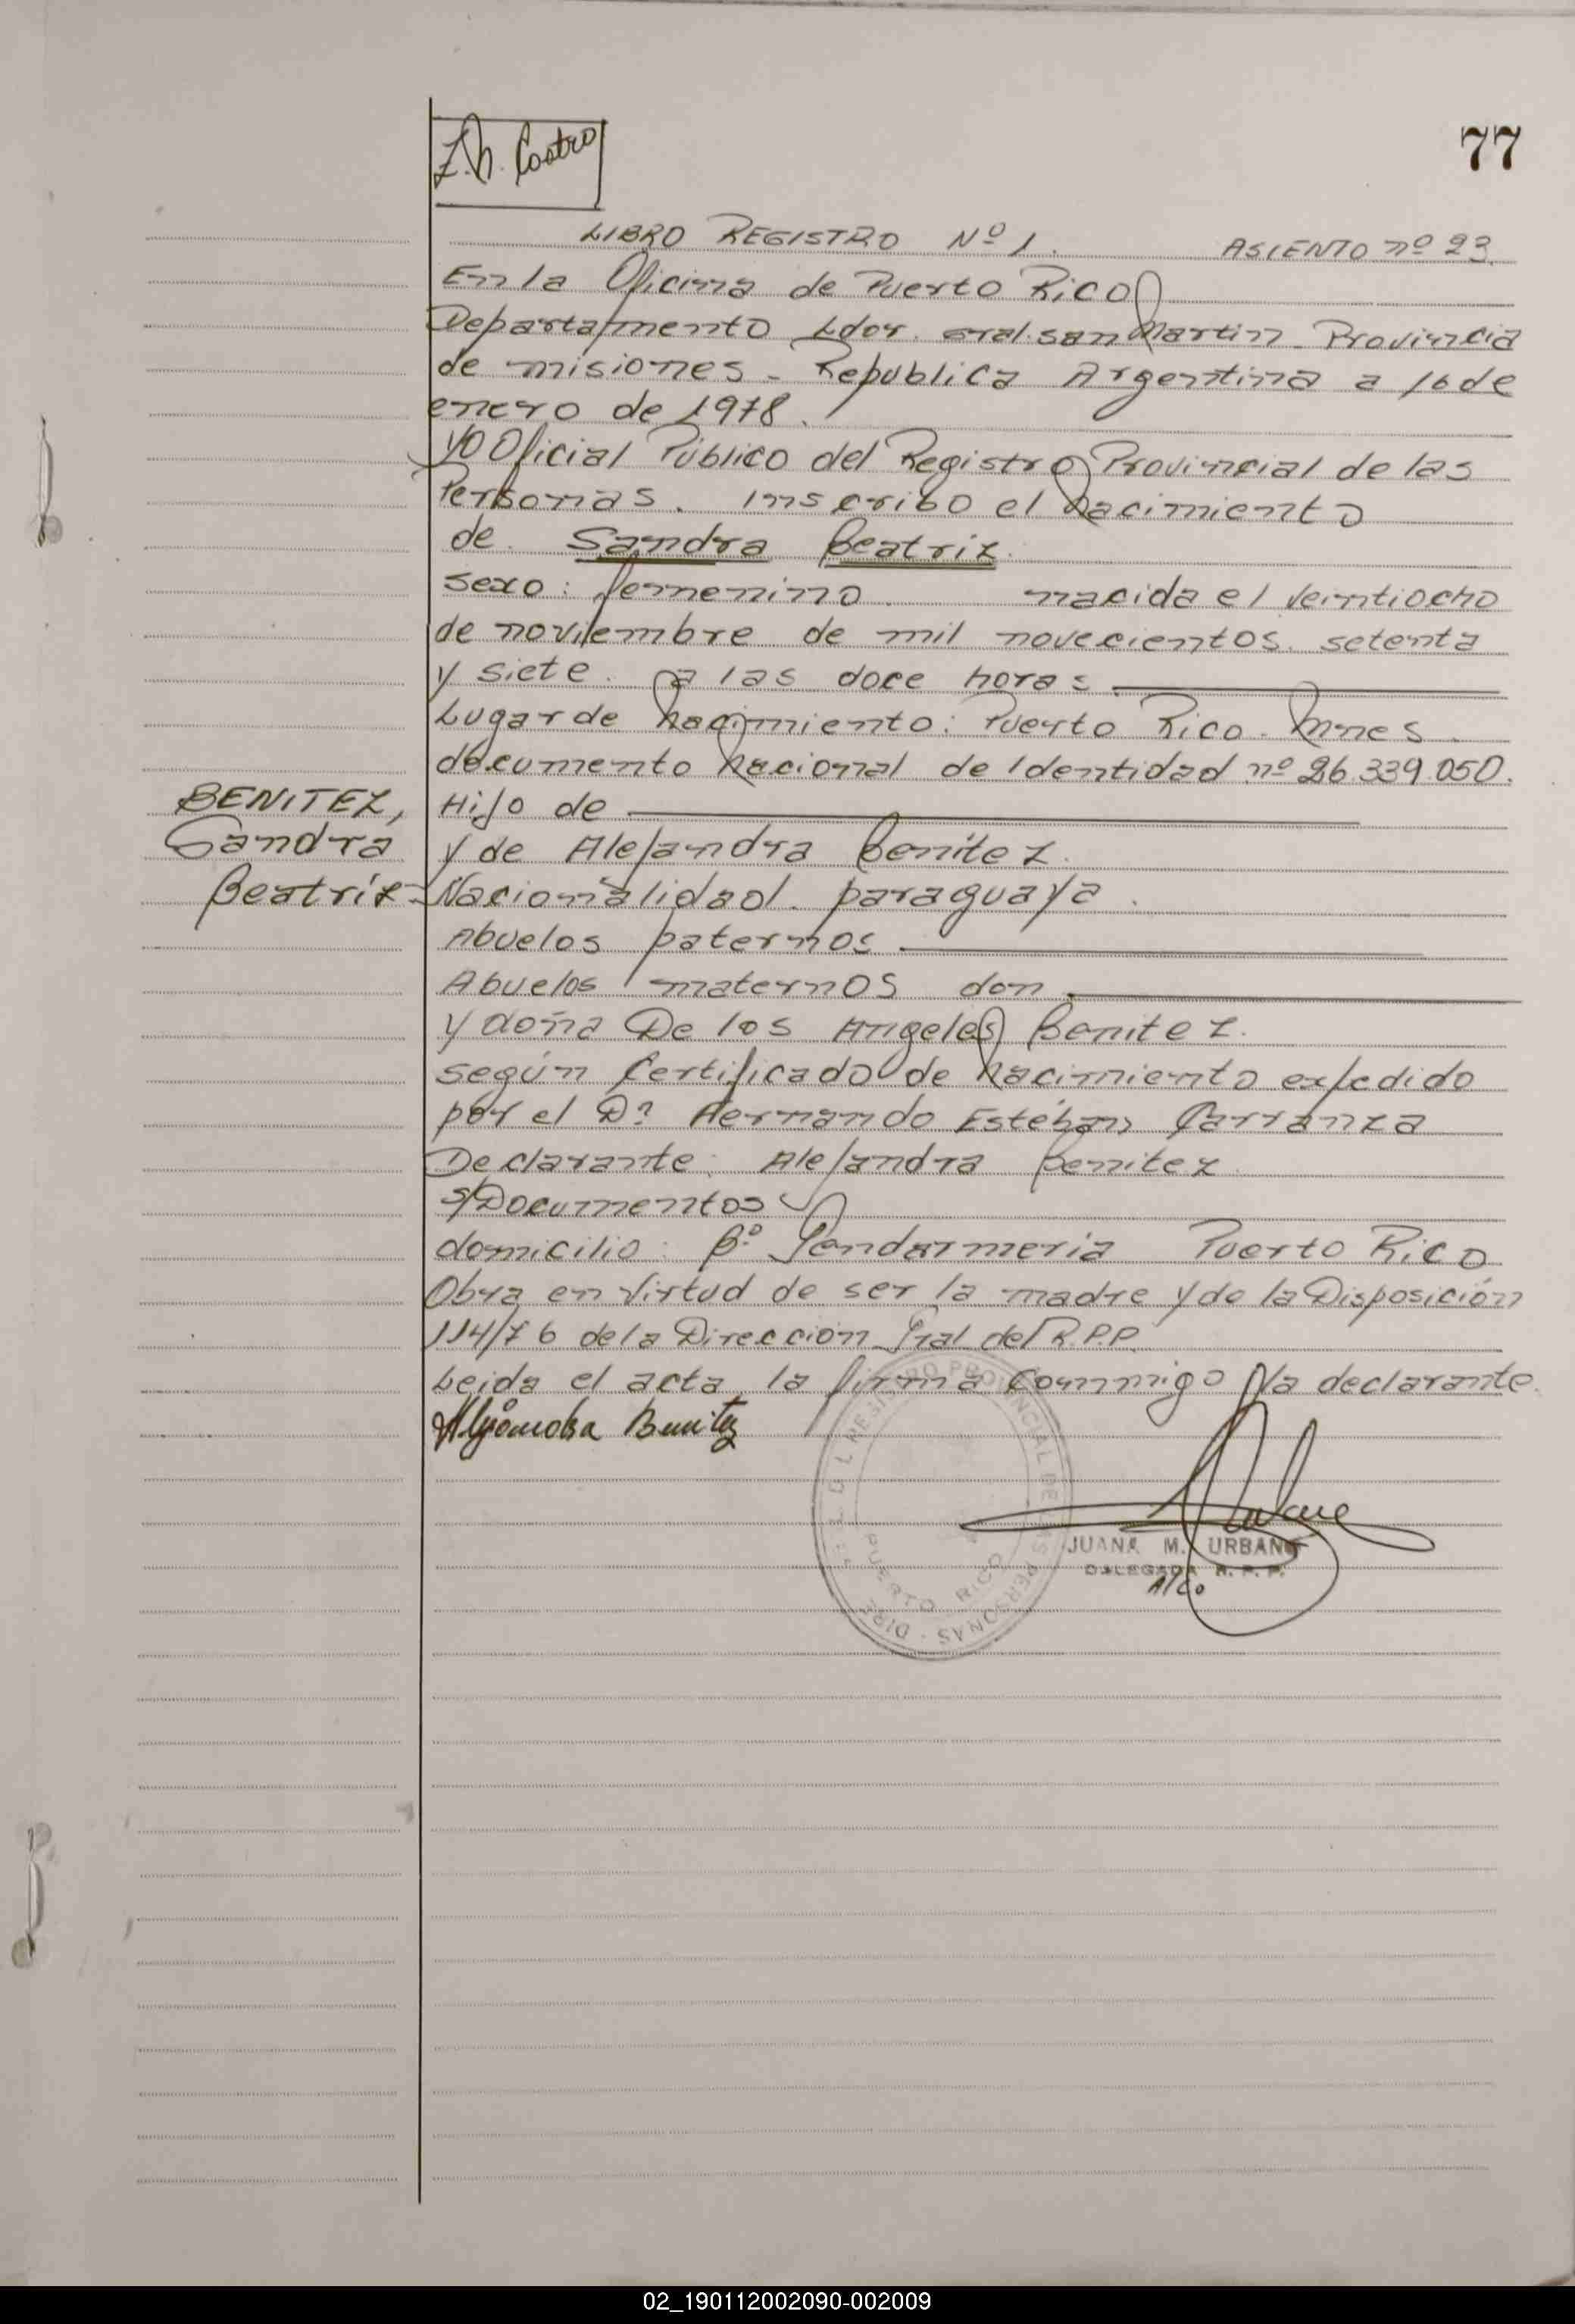 77
Castro
LIBRO REGISTRO Nº 1. ASIENTO nº 23.
En la Oficina de Puerto Rico
Departamento Ldor. Gral. San Martin - Provincia
de misiones - Republica Argentina a 16 de
enero de 1978.
Yo Oficial Público del Registro Provincial de las
Personas. Inscribo el Nacimiento
de Sandra Beatriz.
sexo: femenino. nacida el veintiocho
de noviembre de mil novecientos setenta
y siete. a las doce horas
Lugar de Nacimiento: Puerto Rico - Mnes.
documento Nacional de Identidad nº 26.339.050.
BENITEZ,
Sandra
Beatriz -
Hijo de
y de Alejandra Benítez.
Nacionalidad. paraguaya.
Abuelos paternos
Abuelos maternos don
y doña De los Angeles Benitez.
según Certificado de Nacimiento expedido
por el Dr. Hernando Estéban Carranza
Declarante: Alejandra Benitez
s/Documentos
domicilio: Bº Gendarmeria Puerto Rico
Obra en virtud de ser la madre y de la Disposición
114/76 de la Dirección Gral del R.P.P.
Leida el acta, la firma conmigo la declarante.
Alejandra Benitez
REGISTRO PROVINCIAL DE LAS PERSONAS
PUERTO RICO
JUANA M. URBANO
DELEGADA R. P. P.